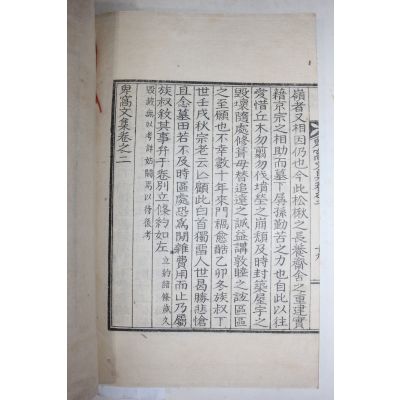 嶺者又相因仍也今此松楸之長養齋舍之重建實
籍京宗之相助而墓下孱孫勤苦之力也自此以往
愛惜丘木勿翦勿伐墳塋之崩頹及時封築屋宇之
毀壞隨處修葺毋替追遠之誠益講敦睦之誼區區
之至顧也不幸數十年來門禍愈酷乙卯冬族叔丁
世壬戌秋宗老云亾顧此白首獨留人世曷勝悲愴
且念墓田若不及時區處恐爲閒雜費用而止乃屬
族叔敘其事弁于卷別立條約如左立約諸條歲久
毀破無以考詳姑闕焉以待後考
卑窩文集卷之二